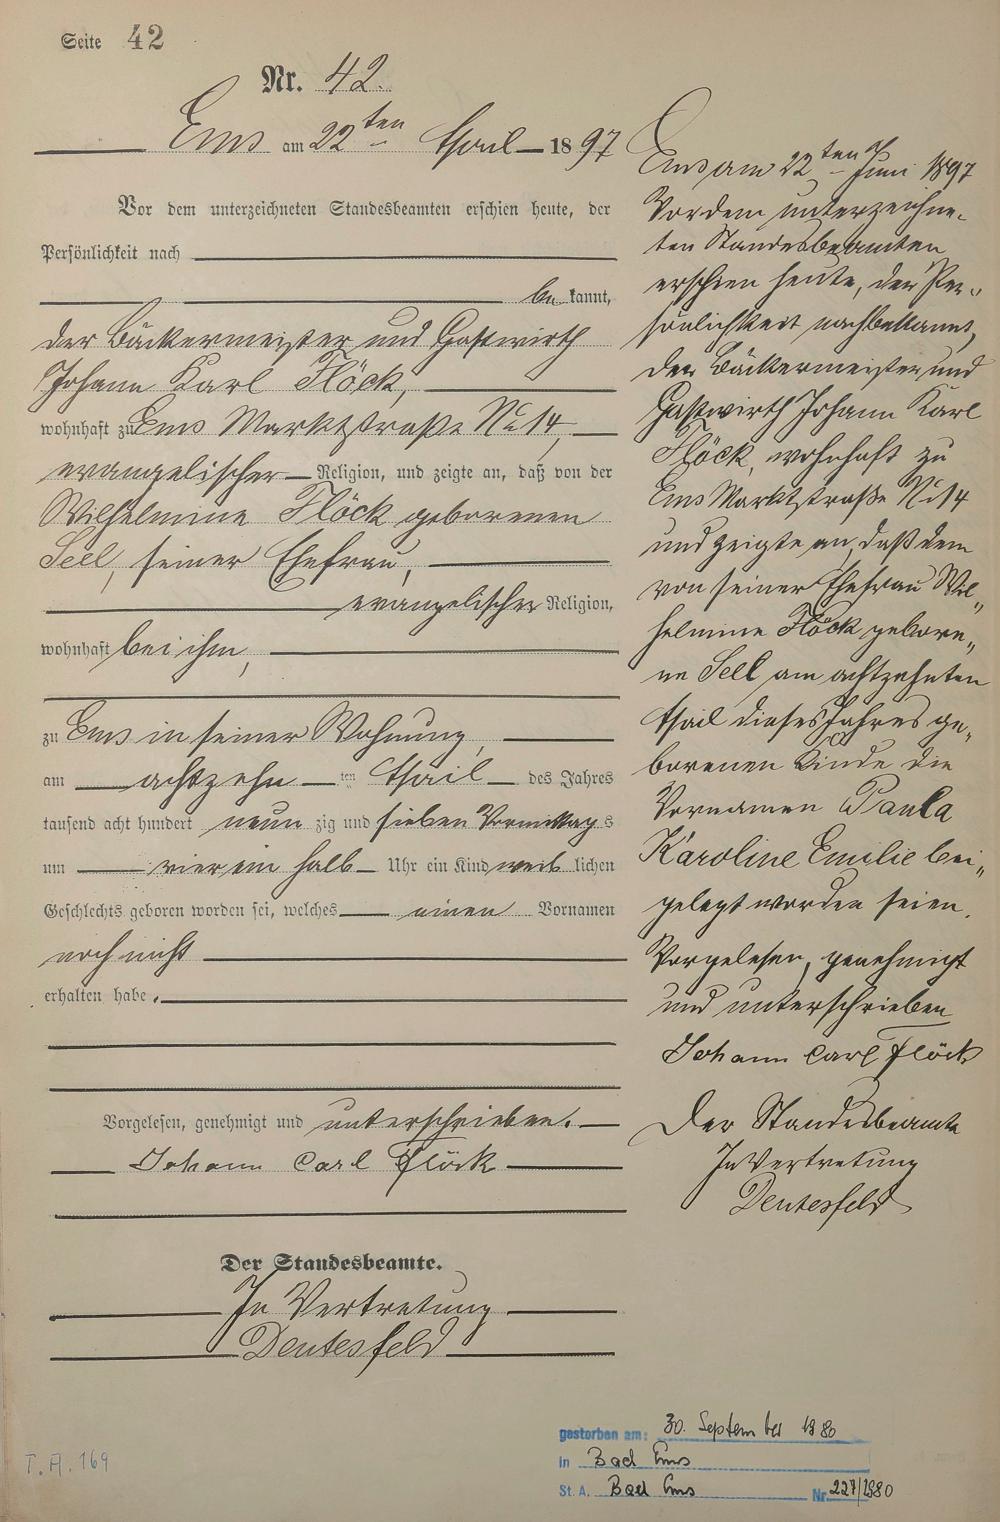 Seite 42
Nr. 42.
Ems am 22ten April 1897
Vor dem unterzeichneten Standesbeamten erschien heute, der
Persönlichkeit nach
bekannt,
der Bäckermeister und Gastwirth
Johann Karl Flöck,
wohnhaft zu Ems Marktstraße No 14,
evangelischer Religion, und zeigte an, daß von der
Wilhelmine Flöck geborenen
Seel, seiner Ehefrau,
evangelischer Religion,
wohnhaft bei ihm,
zu Ems in seiner Wohnung,
am achtzehn ten April des Jahres
tausend acht hundert neunzig und sieben Vormittags
um vier ein halb Uhr ein Kind weiblichen
Geschlechts geboren worden sei, welches einen Vornamen
noch nicht
erhalten habe.
Vorgelesen, genehmigt und unterschrieben.
Johann Carl Flöck
Der Standesbeamte.
In Vertretung
Deutesfeld
Ems am 22ten Juni 1897
Vor dem unterzeichne-
ten Standesbeamten
erschien heute, der Per-
sönlichkeit nach bekannt,
der Bäckermeister und
Gastwirth Johann Karl
Flöck, wohnhaft zu
Ems Marktstraße No 14
und zeigte an, daß dem
von seiner Ehefrau Wil-
helmine Flöck gebore-
ne Seel am achtzehnten
April dieses Jahres ge-
borenen Kinde die
Vornamen Paula
Karoline Emilie bei-
gelegt worden seien.
Vorgelesen, genehmigt
und unterschrieben
Johann Carl Flöck
Der Standesbeamte
In Vertretung
Deutesfeld
gestorben am: 30. September 1980
in Bad Ems
St. A. Bad Ems Nr 227/1980
T. A. 169